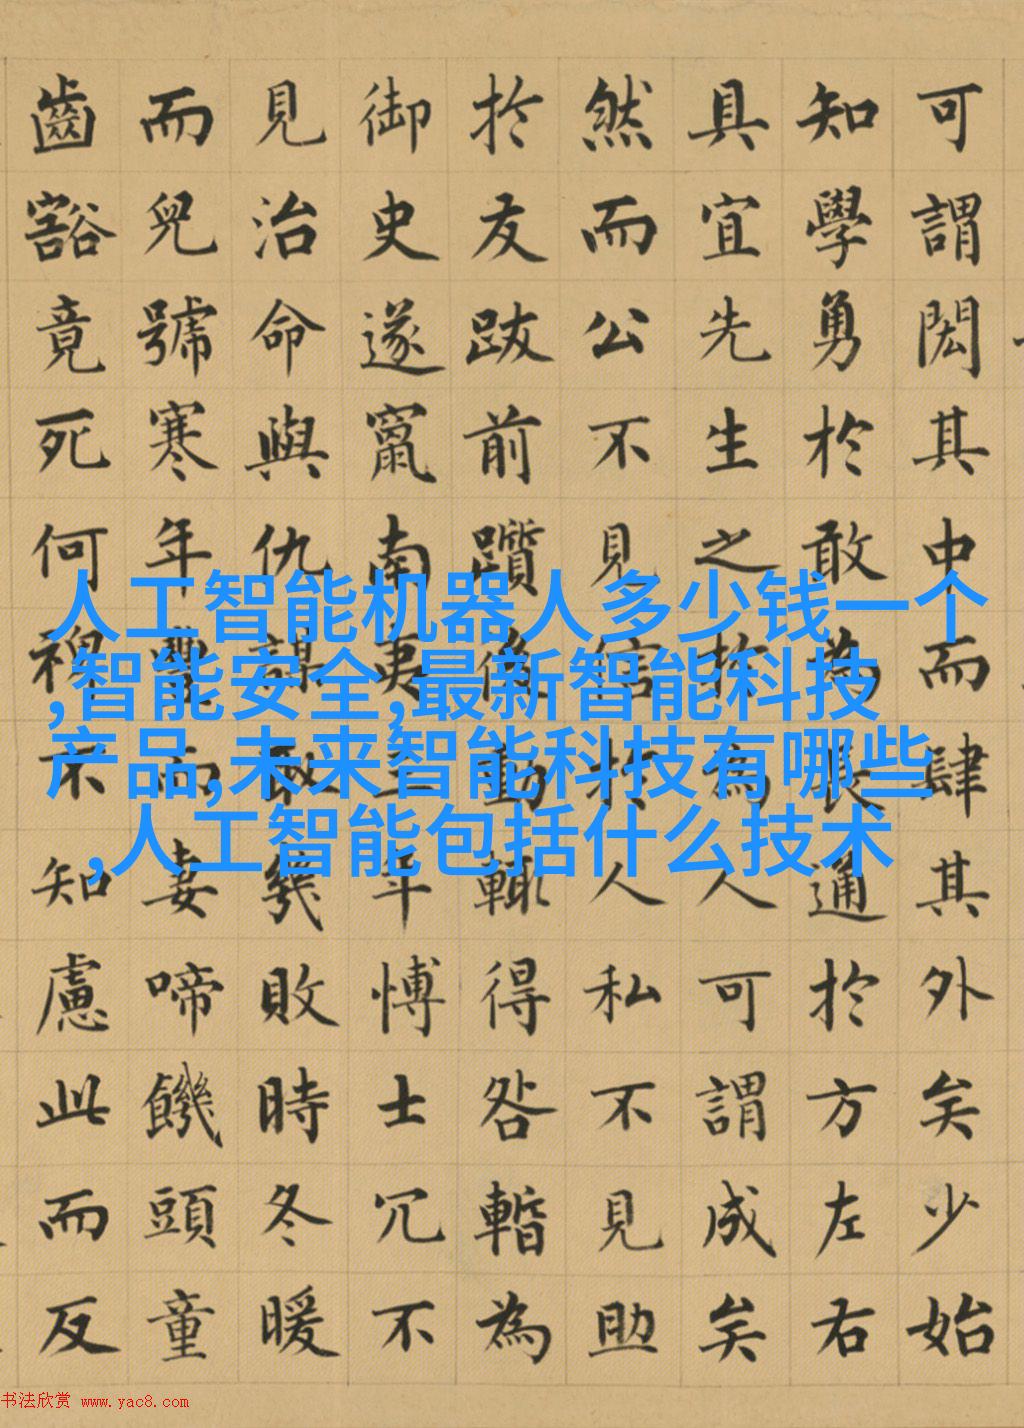 可謂閎其中而肆其外矣少始
知學勇於敢為長通於方左右
具宜先生之於為人可謂成矣
然而公不見信於人私不見助
於友跋前躓後動輒得咎暫為
御史遂竄南夷三年愽士冗不
見治命與仇謀取幾敗時冬暖
而兒號寒年豐而妻啼饑頭童
齒豁竟死何裨不知慮此而反
人工智能机器人多少钱一个
,智能安全,最新智能科技
产品,未来智能科技有哪些
,人工智能包括什么技术
书法欣赏 www.yac8.com